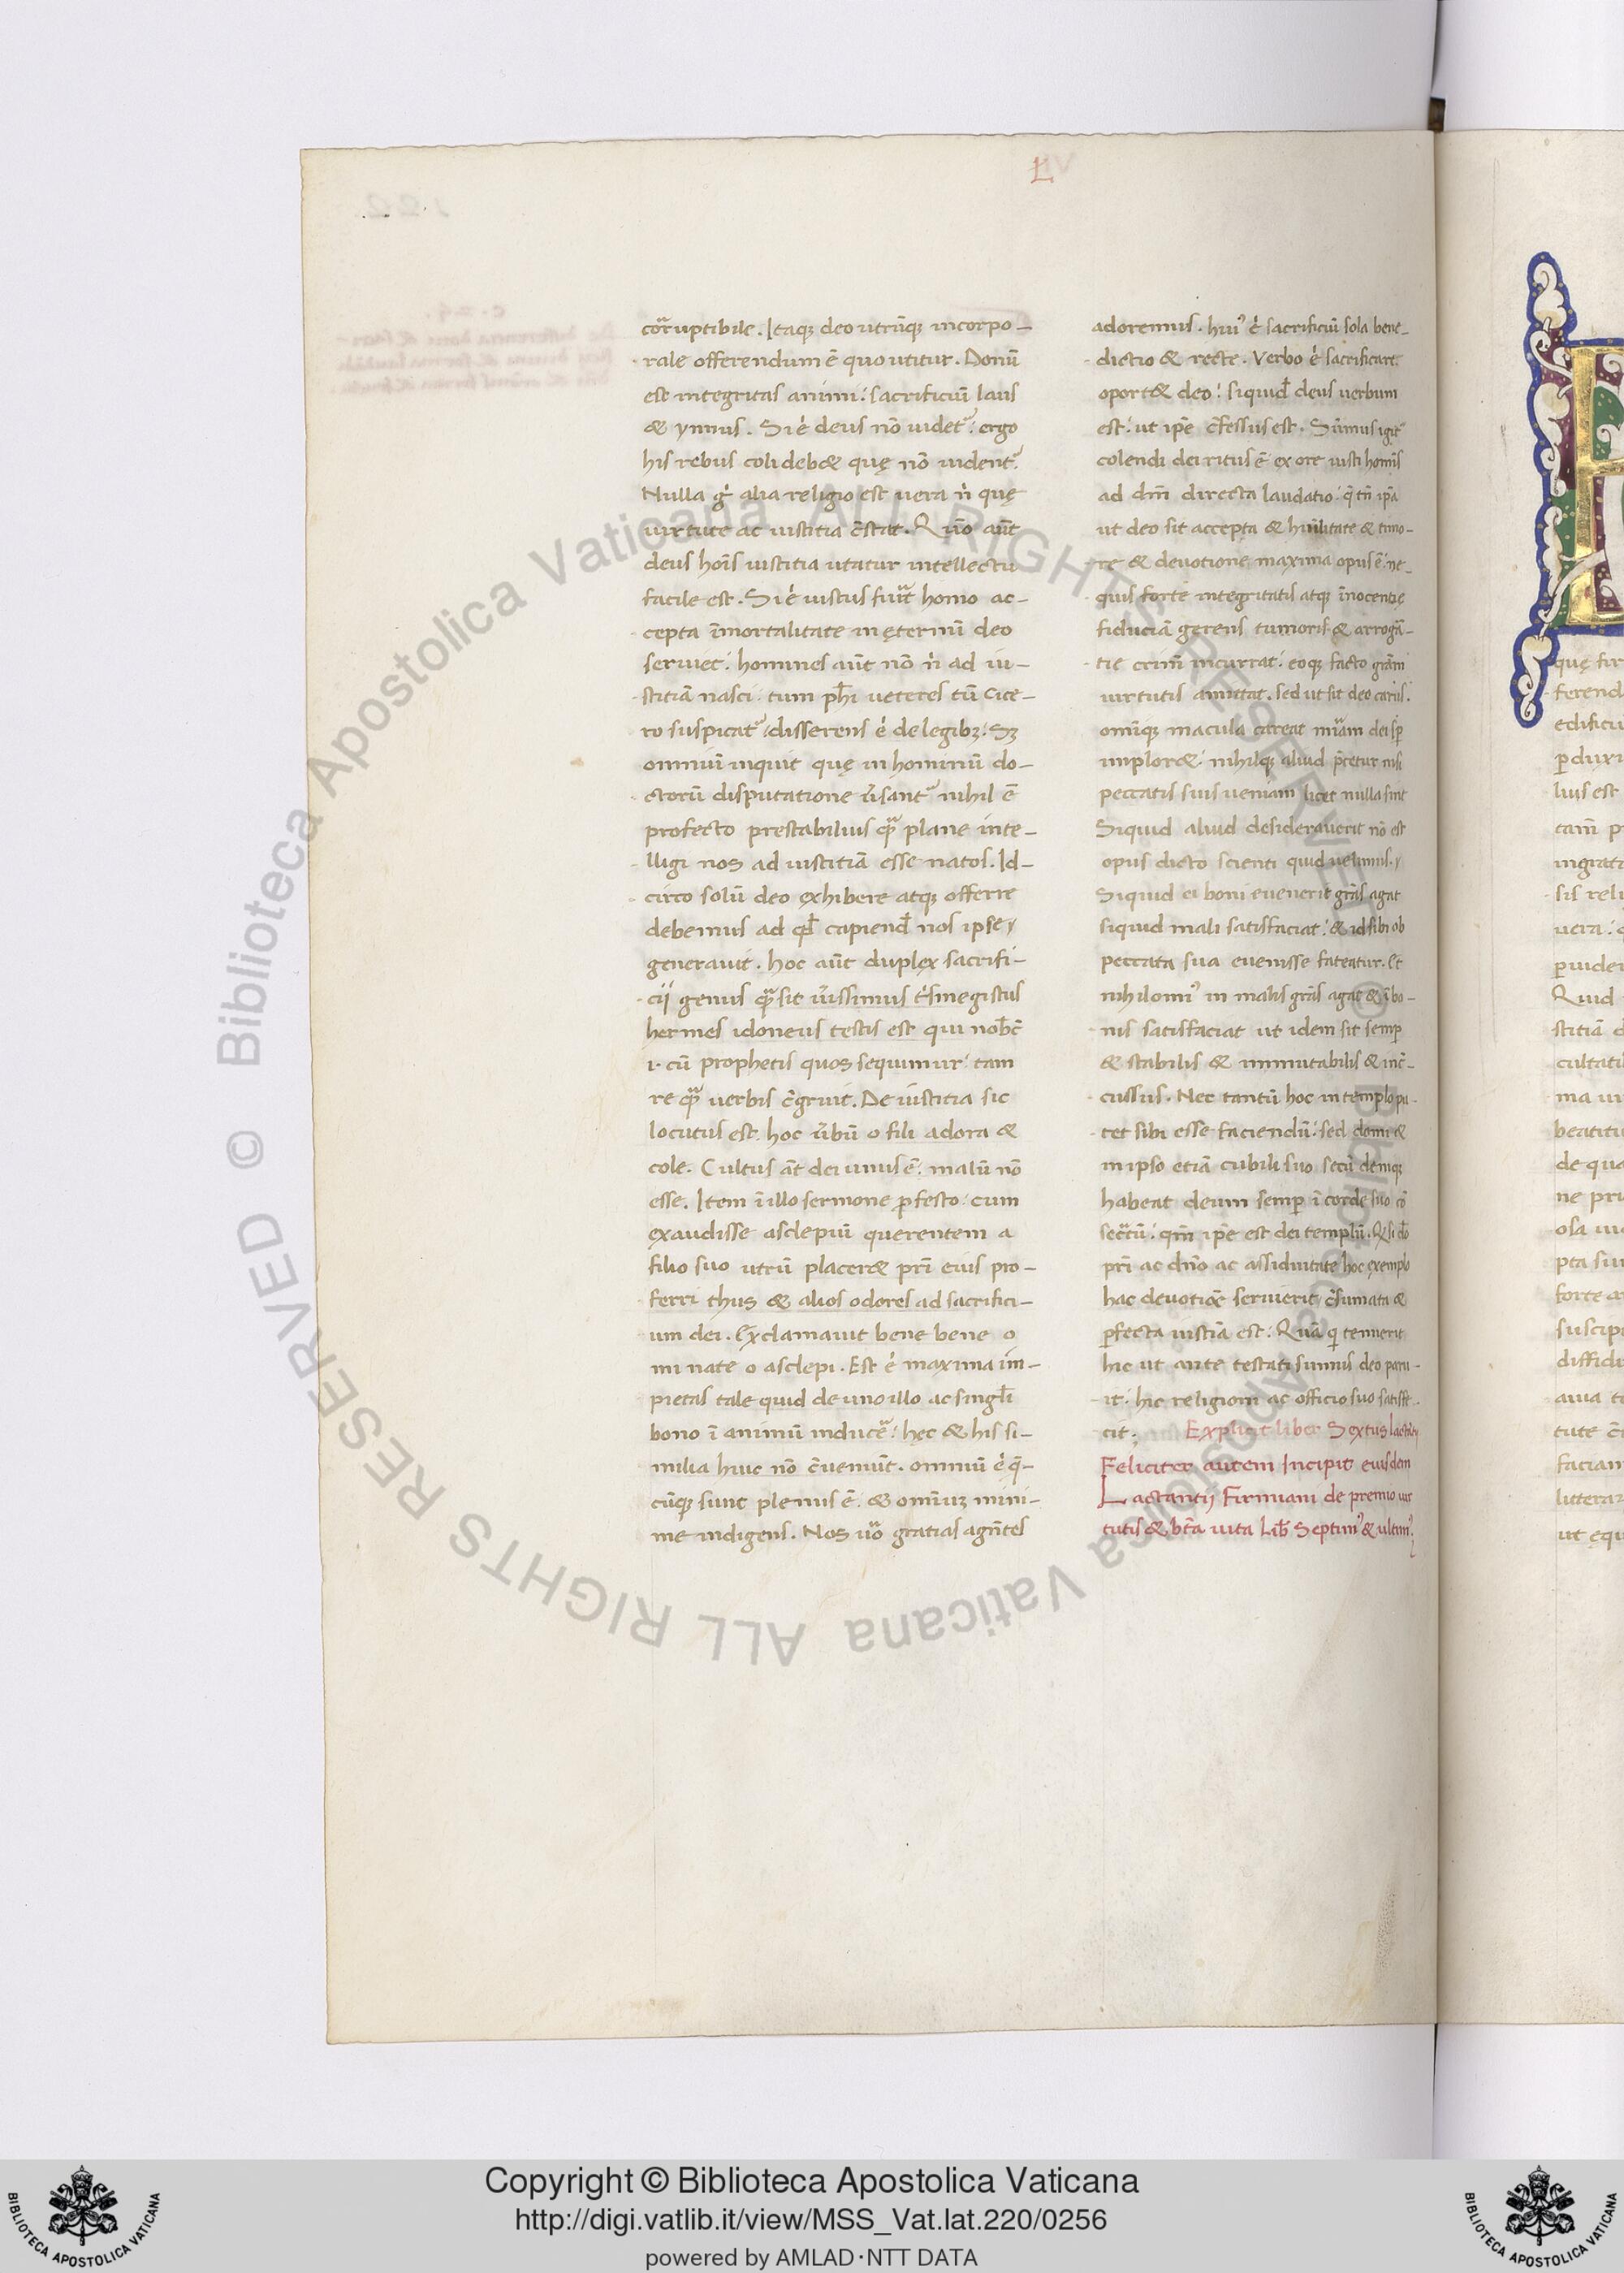 L
corruptibile. Itaq; deo utrūq; incorpo-
rale offerendum ē quo utitur. Donū
est integritas animi: sacrificiū laus
& ymnus. Si ē deus nō uidet᷑: ergo
his rebus coli debet quę nō uident᷑.
Nulla gͥ alia religio est uera nͥ quę
uirtute ac iustitia c̄stat. Quō aūt
deus hoīs iustitia utatur intellectu
facile est. Si ē iustus fuit homo ac-
cepta īmortalitate in ęternū deo
seruiet: homines aūt nō nͥ ad iu-
stitiā nasci: tum ph̄i ueteres tū Cice-
ro suspicat᷑ / disserens ē de legibꝫ: Sꝫ
omniū inquit quę in hominū do-
ctorū disputatione ūsant᷑ nihil ē
profecto prestabilius quā plane inte-
lligi nos ad iustitiā esse natos. Id-
circo solū deo exhibere atq; offerre
debemus ad qd̄ capiend̄ nos ipse
generauit. hoc aūt duplex sacrifi-
cij genus quā sit ūissimus tͥsmegistus
hermes idoneus testis est qui nobc̄
i. cū prophetis quos sequimur: tam
re quā uerbis c̄gruit. De iustitia sic
locutus est. hoc ūbū o fili adora &
cole. Cultus āt dei unus ē. malū nō
esse. Item ī illo sermone ꝑfecto: cum
exaudisse asclepiū querentem a
filio suo utrū placeret pr̄i eius pro-
ferri thus & alios odores ad sacrifici-
um dei. Exclamauit bene bene o
mi nate o asclepi. Est ē maxima im-
pietas tale quid de uno illo ac singl̄i
bono ī animū inducē: hęc & his si-
milia huic nō c̄ueniūt. omniū ē q̄-
cūq; sunt plenus ē. & omīuꝫ mini-
me indigens. Nos uō gratias agētes
adoremus. hui᷒ ē sacrificiū sola bene-
dictio & recte. Verbo ē sacrificare
oportet deo: siquid̄ deus uerbum
est: ut ip̄e c̄fessus est. Sūmus igit᷑
colendi dei ritus ē ex ore iusti homīs
ad dm̄ directa laudatio: q̄ tn̄ ip̄a
ut deo sit accepta & humilitate & timo-
re & deuotione maxima opus ē: ne-
quis forte integritatis atq; īnocentię
fiduciā gerens tumoris & arrogā-
tię crim̄ incurrat: eoq; facto gr̄am
uirtutis amittat. sed ut sit deo carus:
omīq; macula careat miām dei sꝑ
imploret: nihilq; aliud p̄cetur nisi
peccatis suis ueniam licet nulla sint
Siquid aliud desiderauerit nō est
opus dicto scienti quid uelimus.
Siquid ei boni euenerit gr̄as agat
siquid mali satisfaciat: & id sibi ob
peccata sua euenisse fateatur. Et
nihilomi᷒ in malis gr̄as agat & ī bo-
nis satisfaciat ut idem sit semꝑ
& stabilis & immutabilis & inc̄-
cussus. Nec tantū hoc in templo pu-
tet sibi esse faciendū: sed domi &
in ipso etiā cubili suo secū deniq;
habeat deum semꝑ ī corde suo cō
secrtū: qm̄ ip̄e est dei templū. Qd̄ si do
pr̄i ac dn̄o ac assiduitate hoc exemplo
hac deuotiōe seruierit: c̄sumata &
ꝑfecta iustiā est: Quā q̄ tenuerit
hic ut ante testati sumus deo paru-
it: hic religioni ac officio suo satisfe-
cit; Explicit liber Sextus
Feliciter autem Incipit eiusdem
Lactantij Firmiani de premio uir
tutis & bt̄a uita Lib̄ Septim᷒ & ultim᷒
quę fir
ferend
edificiu
ꝑduxi
lius est
tam̄ p
ingrati
sis reli
uera: 
ꝑuider
Quid
stitiā
cultati
ma ui
beatitu
de qua
ne pri
osa
pta sui
forte
suscip
diffid
aiia
tute
faciam
litterar
ut equ
Copyright © Biblioteca Apostolica Vaticana
http://digi.vatlib.it/view/MSS_Vat.lat.220/0256
powered by AMLAD·NTT DATA
BIBLIOTECA APOSTOLICA VATICANA
BIBLIOTECA APOSTOLICA VATICANA
© Biblioteca Apostolica Vaticana ALL RIGHTS RESERVED
© Biblioteca Apostolica Vaticana ALL RIGHTS RESERVED